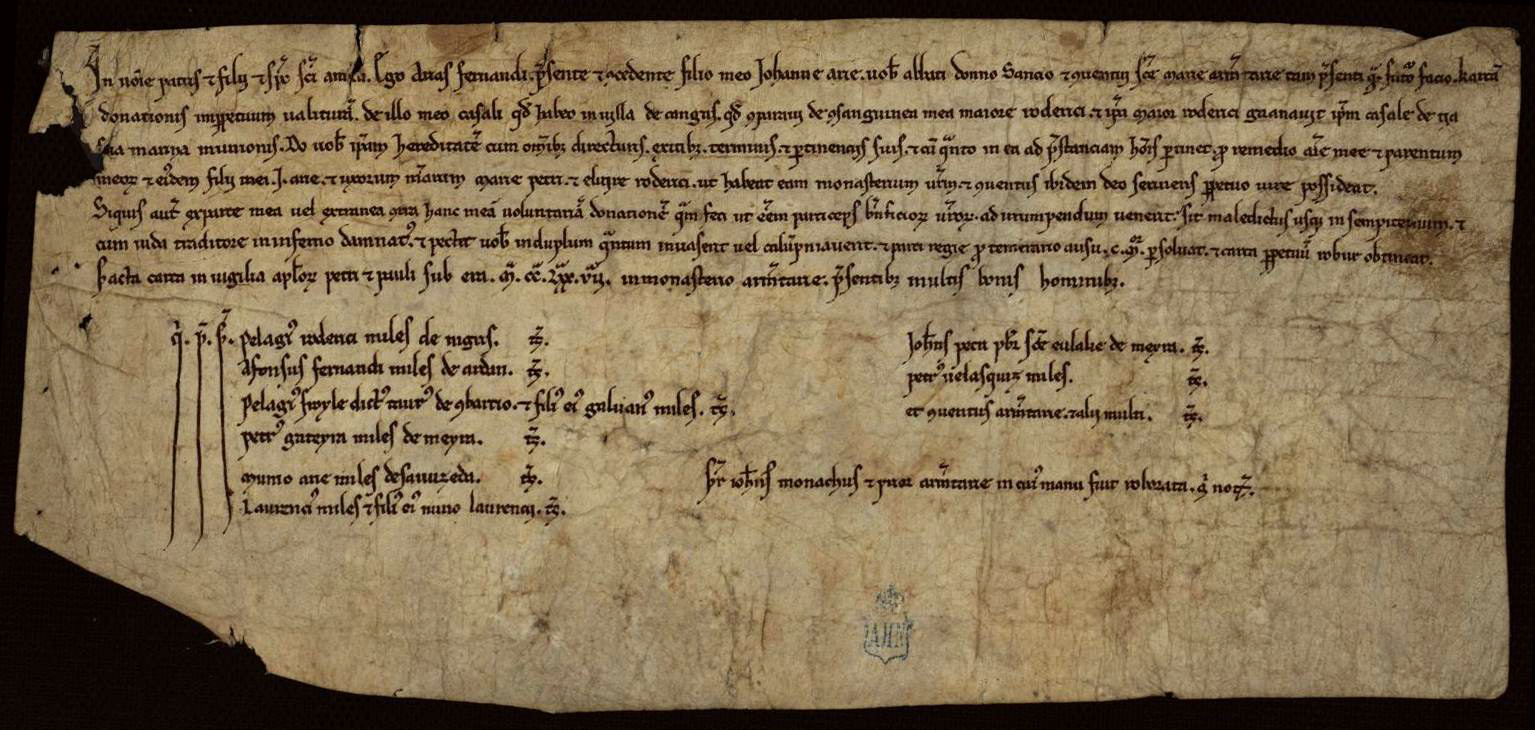 In noīe patris ⁊ filii ⁊ sp̄c sc̄i am̄. Ego Arias fernandi. p̄sente ⁊ ɔcedente filio meo Iohanne arie. uob̄ abbati donno Sancio ⁊ ɔuentui sc̄e marie arm̄tarie tam p̄senti q̄ futo facio kartā
donationis inppetuum ualiturā. de illo meo casali qd̄ habeo in uilla de cangas. qd̄ ɔparaui de ɔsanguinea mea maiore roderici. ⁊ ip̄a maior roderici ganauit ip̄m casale de tia
sua marina munionis. Do uob̄ ip̄am hereditatē cum om̄ib; directuris. exitib;. terminis. ⁊ ptinenciis suis. ⁊ cū q̄nto in ea ad p̄stanciam hōis ptinet. p remedio aīe mee ⁊ parentum
meoꝝ ⁊ eiꝰdem filii mei. J. arie. ⁊ uxorum nr̄arum marie petri. ⁊ eluire roderici. ut habeat eam monasterium ur̄m. ⁊ ɔuentus ibidem deo seruiens ppetuo iure possideat.
Siquis aut̄ ex parte mea uel extranea ɔtra hanc meā uoluntariā donationē q̄m feci ut eēm particeps bn̄ficioꝝ ur̄oꝝ. ad irrumpendum uenerit. sit maledictus usq; in sempiternum. ⁊
cum iuda traditore in inferno damnatꝰ. ⁊ pectet uob̄ in duplum q̄ntum inuaserit uel calūpniauerit. ⁊ parti regie p temerario ausu. c. mr̄. psoluat. ⁊ carta ppetuū robur obtineat.
Facta carta in uigilia apl̄oꝝ petri ⁊ pauli sub era. M̊. CC̊. Lxx. VII. in monasterio arm̄tarie. p̄sentib; multis bonis hominib;.
q̄. p̄. f̄. Pelagiꝰ roderici miles de nigus. ts̄.
Afonsus fernandi miles de ardan. ts̄.
Pelagiꝰ suyle dictꝰ taurꝰ de ɔbarro. ⁊ filiꝰ eiꝰ galuanꝰ miles. ts̄.
petrꝰ gateyra miles de meyra. ts̄.
Munio arie miles de sauuzeda. ts̄.
Laurenciꝰ miles ⁊ filiꝰ eiꝰ nuno laurencii. ts̄.
Ioh̄nis petri pbr̄ sc̄e eulalie de meyra. ts̄.
petrꝰ uelasquiz miles. ts̄.
et ɔuentus arm̄tarie. ⁊ alii multi. ts̄.
Fr̄ ioh̄nis monachus ⁊ prior arm̄tarie in cuiꝰ manu fuit roborata. q̄ not̄.